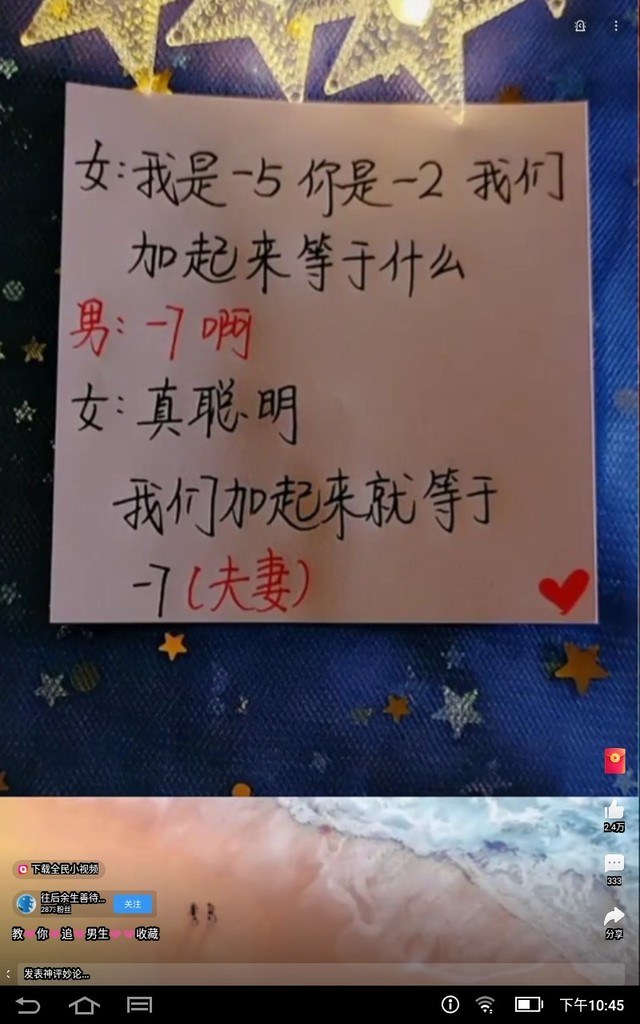 女:我是-5 你是-2 我们
加起来等于什么
男:-7 啊
女:真聪明
我们加起来就等于
-7(夫妻)
2.4万
下载全民小视频
333
往后余生善待...
2873粉丝
关注
教 你 追 男生 收藏
分享
发表神评妙论...
下午10:45